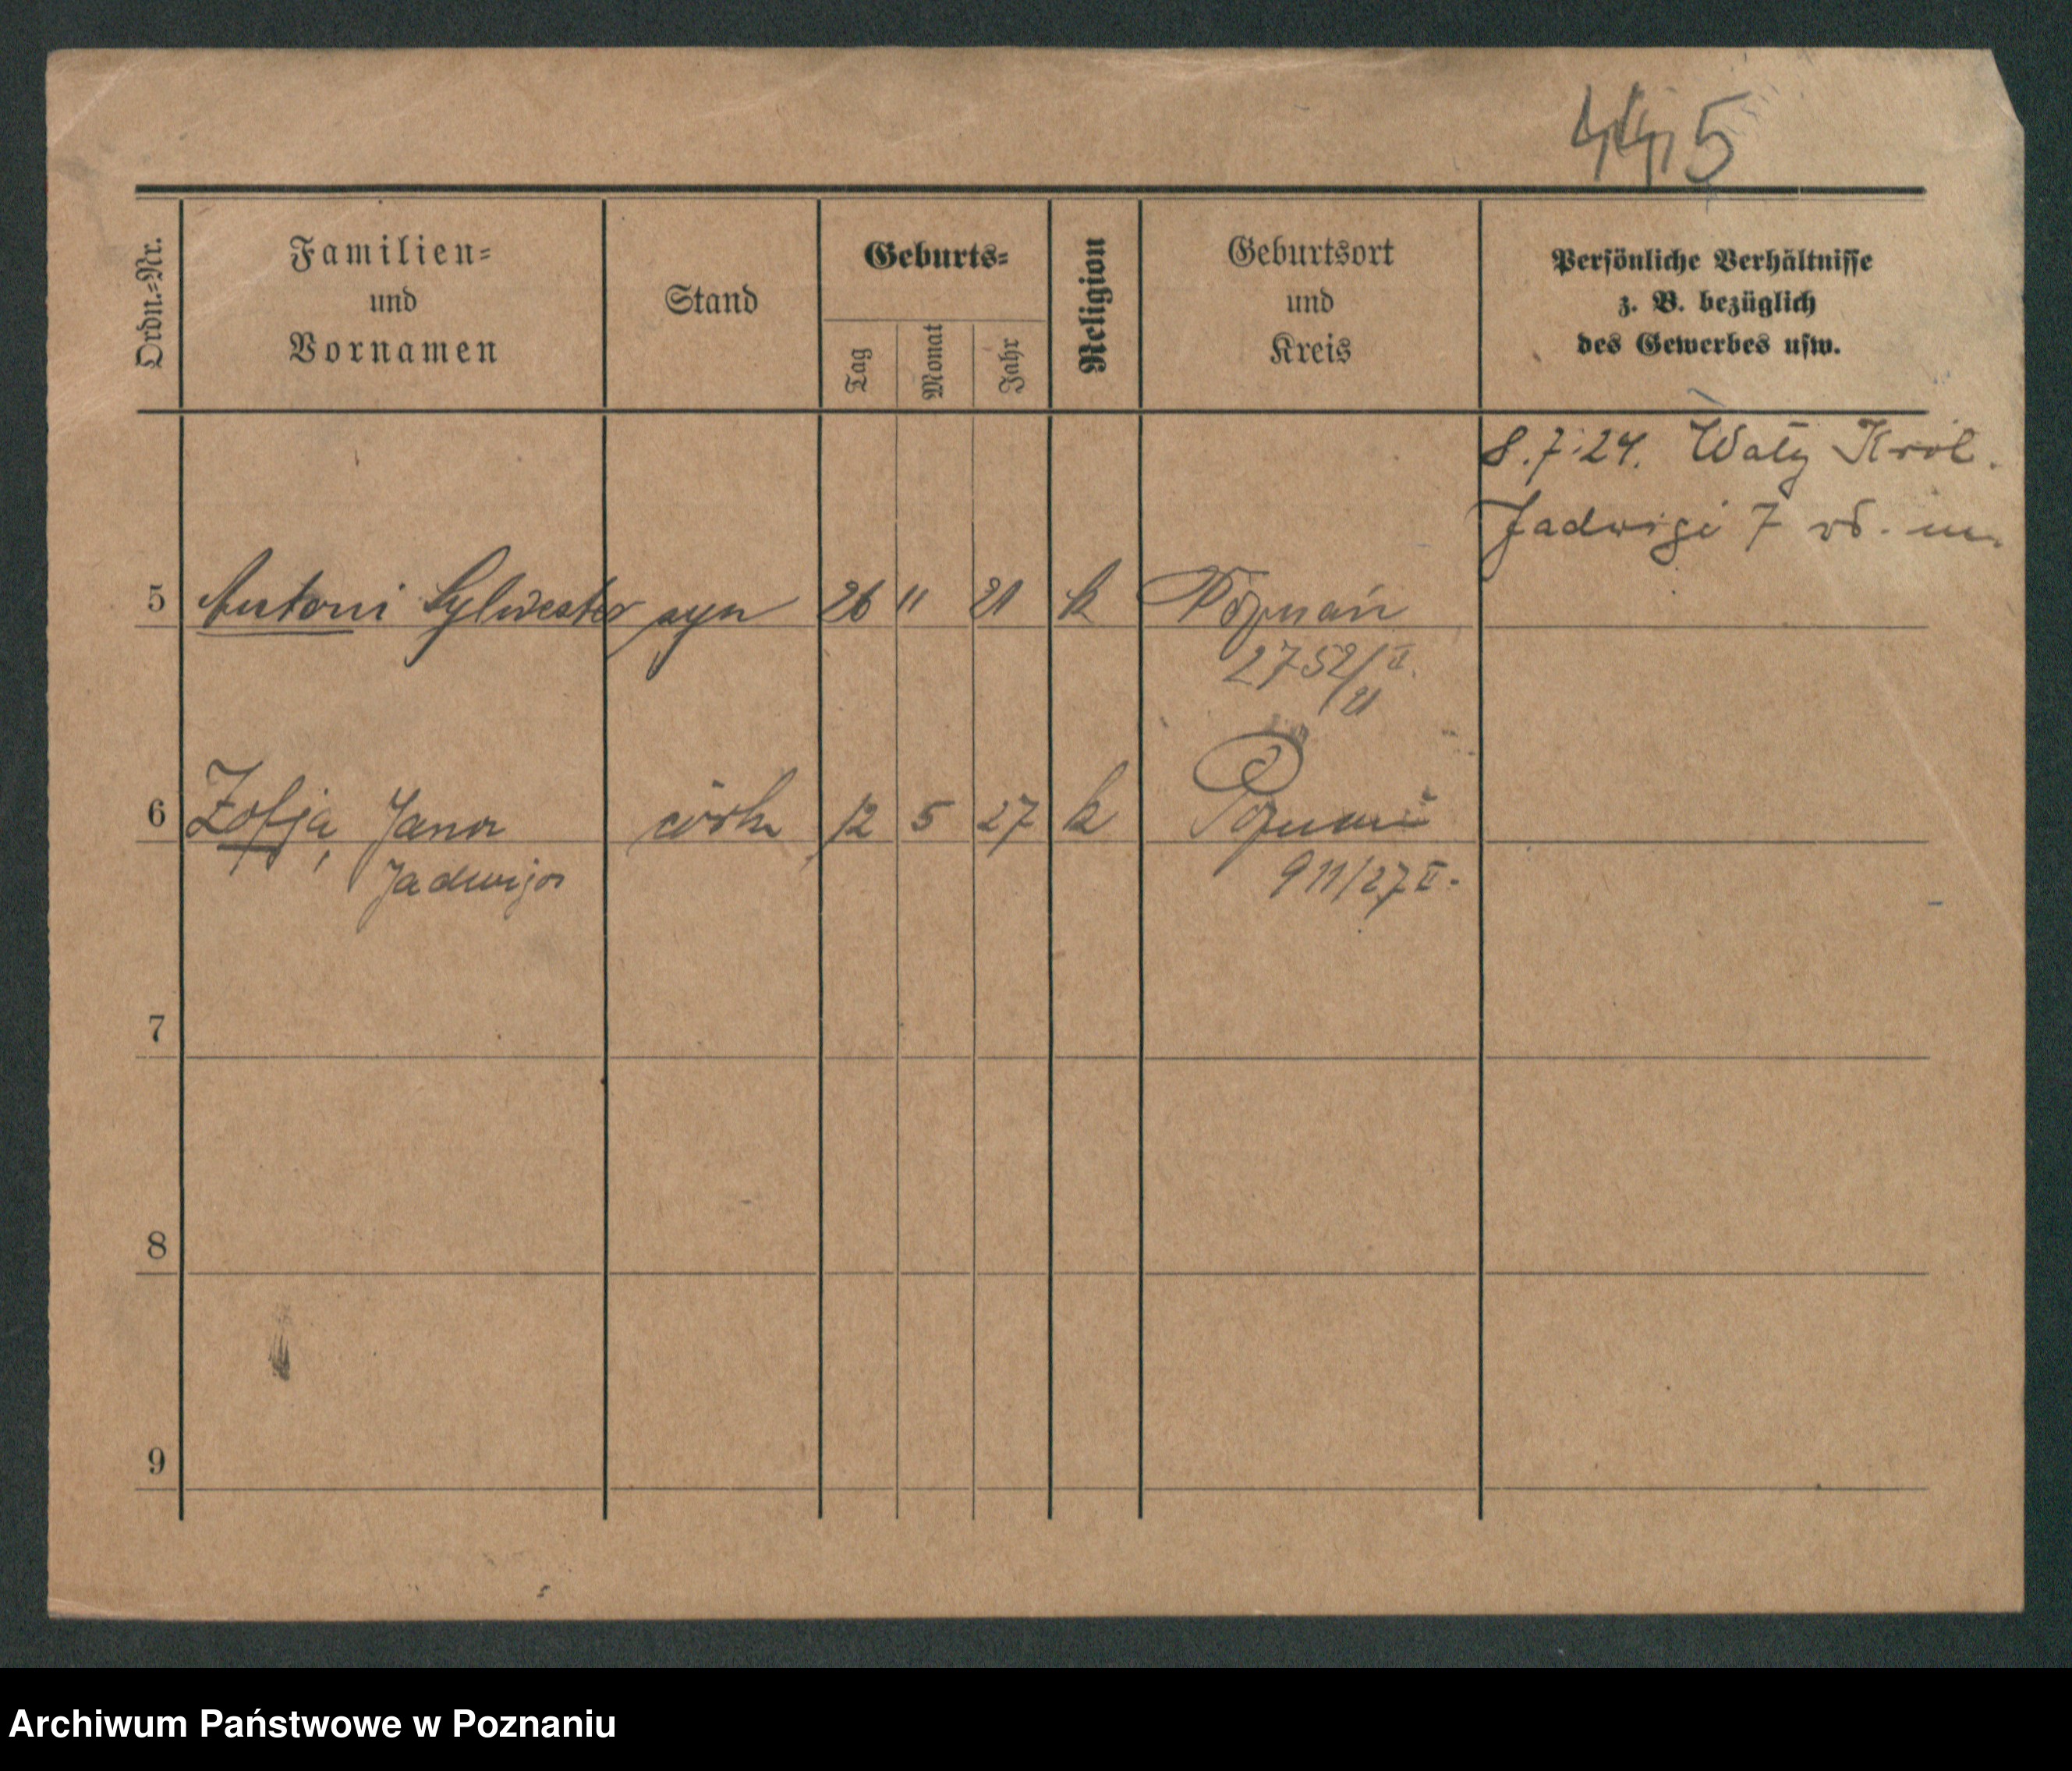 445
Ordn.=Nr.
Familien=
und
Vornamen
Stand
Geburts=
Tag
Monat
Jahr
Religion
Geburtsort
und
Kreis
Persönliche Verhältnisse
z. B. bezüglich
des Gewerbes usw.
8.7.24. Wały Król.
Jadwigi 7
5 Antoni Sylwester syn 26 11 21 k Poznań
2752/II
21
6 Zofja, Jana córka 12 5 27 k Poznań
Jadwiga 911/27 II.
7
8
9
Archiwum Państwowe w Poznaniu